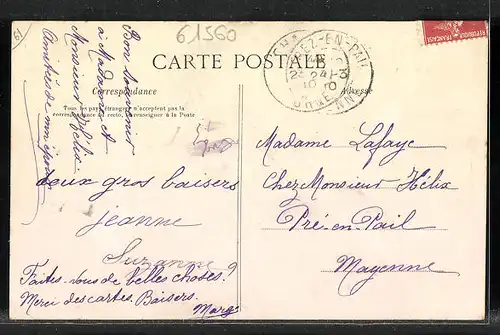 61
61560
CARTE POSTALE
Correspondance
Adresse
Tous les pays étrangers n'acceptent pas la
correspondance au recto, se renseigner à la Poste
Bon souvenir
à Madame et
Monsieur Hélix
Amitiés de
deux gros baisers
jeanne
Suzanne
Faites-vous de belles choses?
Merci des cartes. Baisers.
Marg.
Madame Lafaye
Chez Monsieur Hélix
Pré-en-Pail
Mayenne
PREZ-EN-PAIL
24-3
10
ORNE